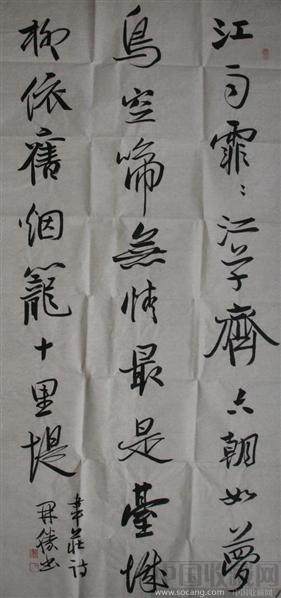 江雨霏〻江草齊六朝如夢
鳥空啼無情最是臺城
柳依舊烟籠十里堤
韋莊詩
勝书
中国收藏网
www.socang.com